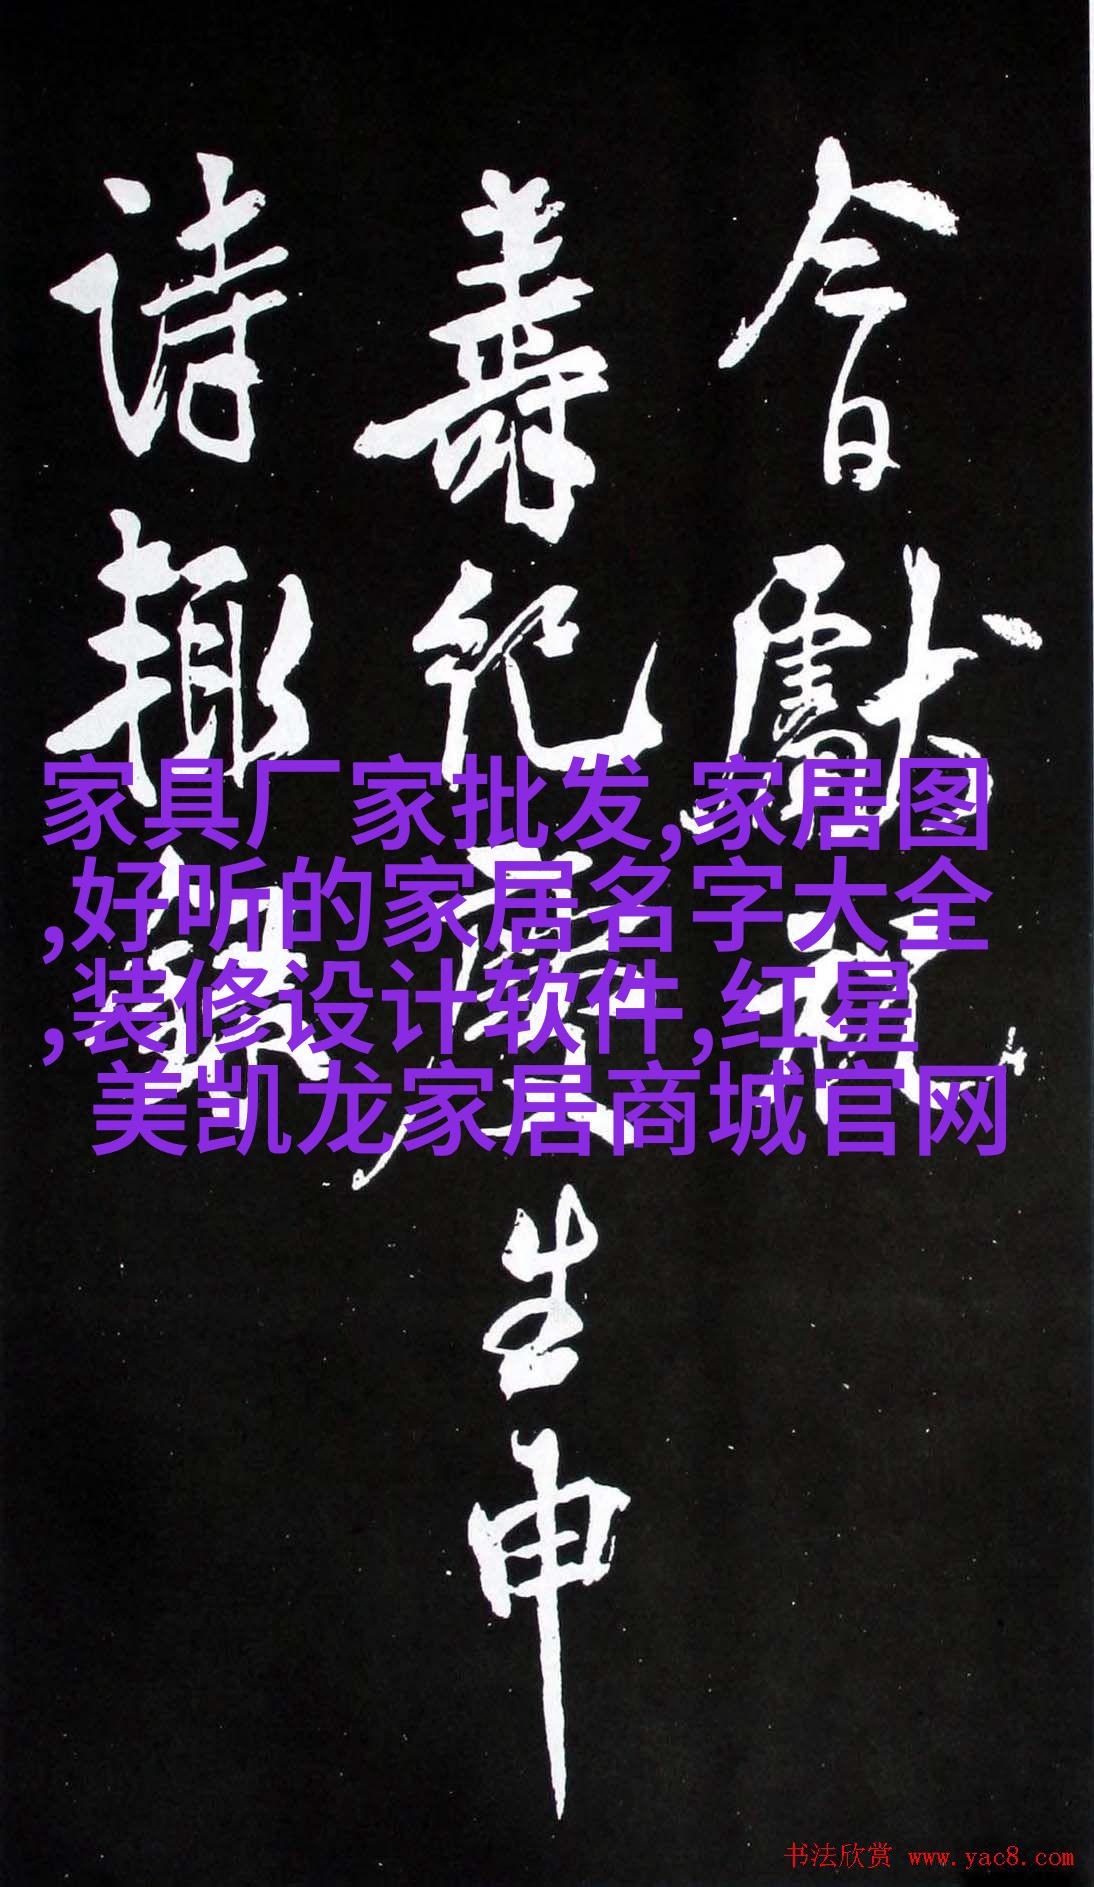 今日獻祝
壽紀慶生申
詩趣
家具厂家批发,家居图
,好听的家居名字大全
,装修设计软件,红星
美凯龙家居商城官网
书法欣赏 www.yac8.com